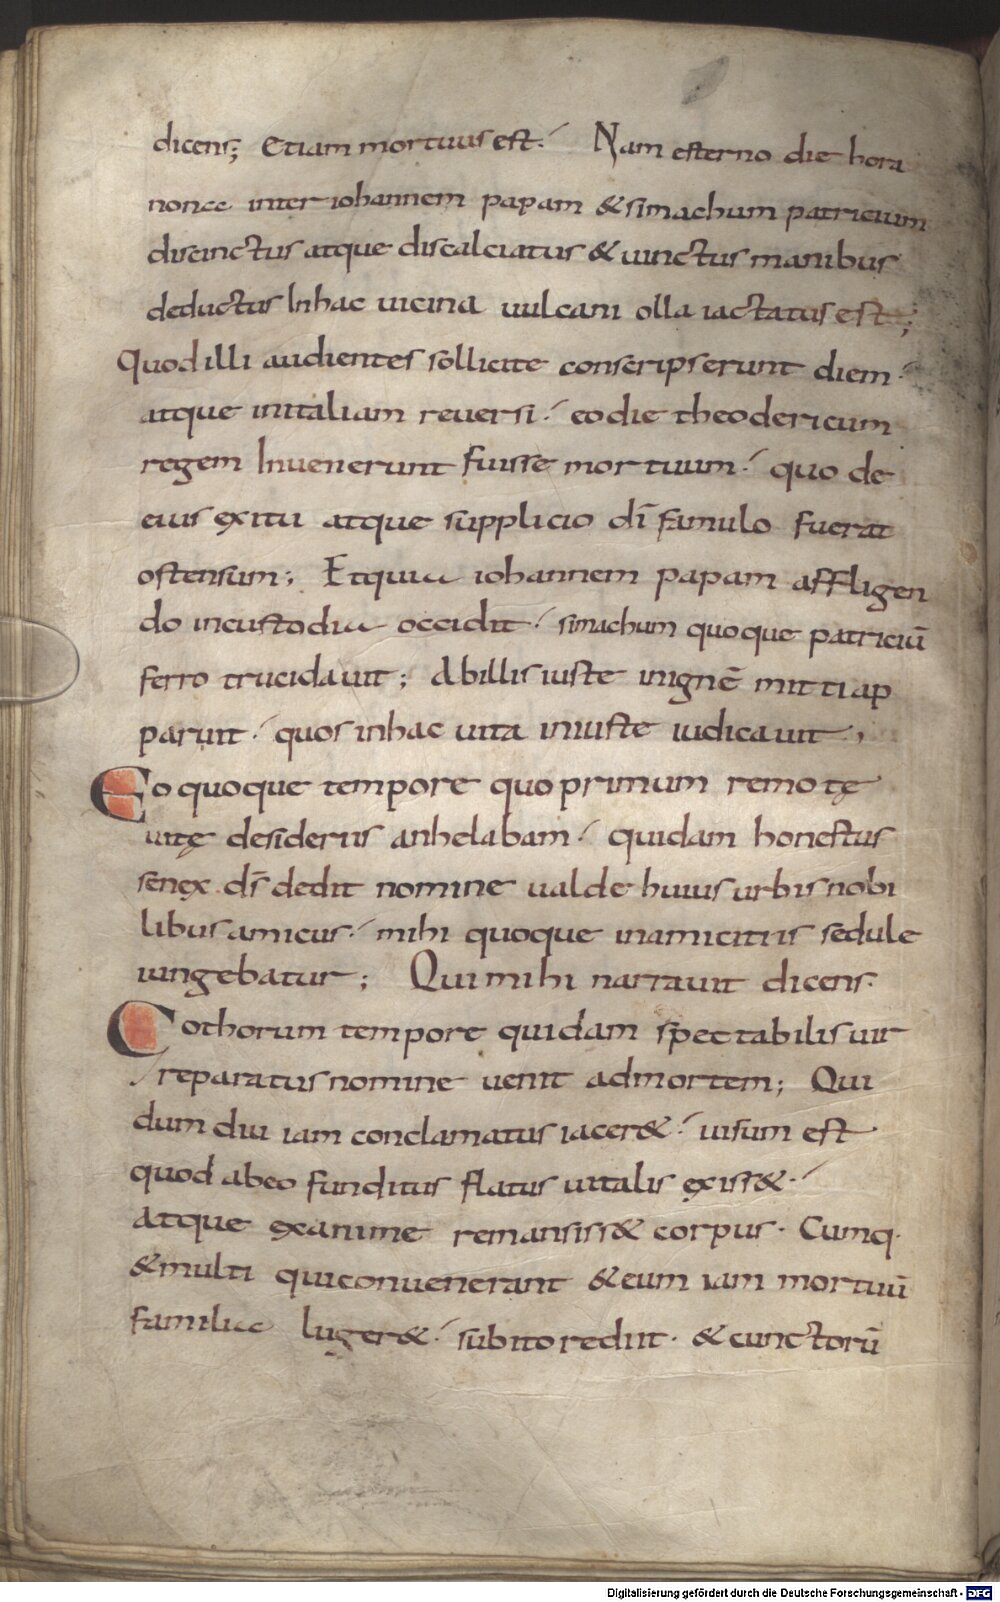 dicens; Etiam mortuus est. Nam esterno die hora
nonae inter iohannem papam & simachum patricium
discinctus atque discalciatus & uinctus manibus
deductus In hac uicina uulcani olla iactatus est;
Quod illi audientes sollicite conscripserunt diem.
atque in italiam reuersi. eo die theodericum
regem Inuenerunt fuisse mortuum. quo de
eius exitu atque supplicio dī famulo fuerat
ostensum; Et quia iohannem papam affligen
do in custodia occidit. simachum quoque patriciū
ferro trucidauit; Ab illis iuste in ignē mitti ap
paruit. quos in hac uita iniuste iudicauit,
Eo quoque tempore quo primum remotę
uitę desideriis anhelabam. quidam honestus
senex dſ dedit nomine ualde huius urbis nobi
libus amicus. mihi quoque in amicitiis sedule
iungebatur; Qui mihi narrauit dicens.
Gothorum tempore quidam spectabilis uir
reparatus nomine uenit ad mortem; Qui
dum diu iam conclamatus iacer&. uisum est
quod ab eo funditus flatus uitalis exiss&.
atque exanime remansiss& corpus. Cumq.
& multi qui conuenerant & eum iam mortuū
familia luger&. subito rediit. & cunctorū
Digitalisierung gefördert durch die Deutsche Forschungsgemeinschaft - DFG